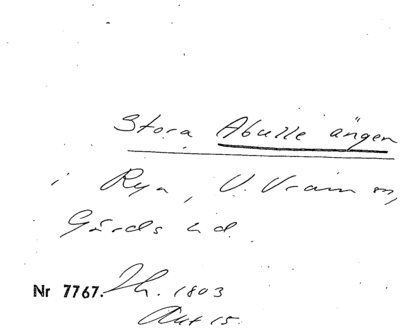 Stora Abulle ängen
i Rya, V. Vram sn,
Gärds hd.
Nr 7767. Zh. 1803
Akt 15.